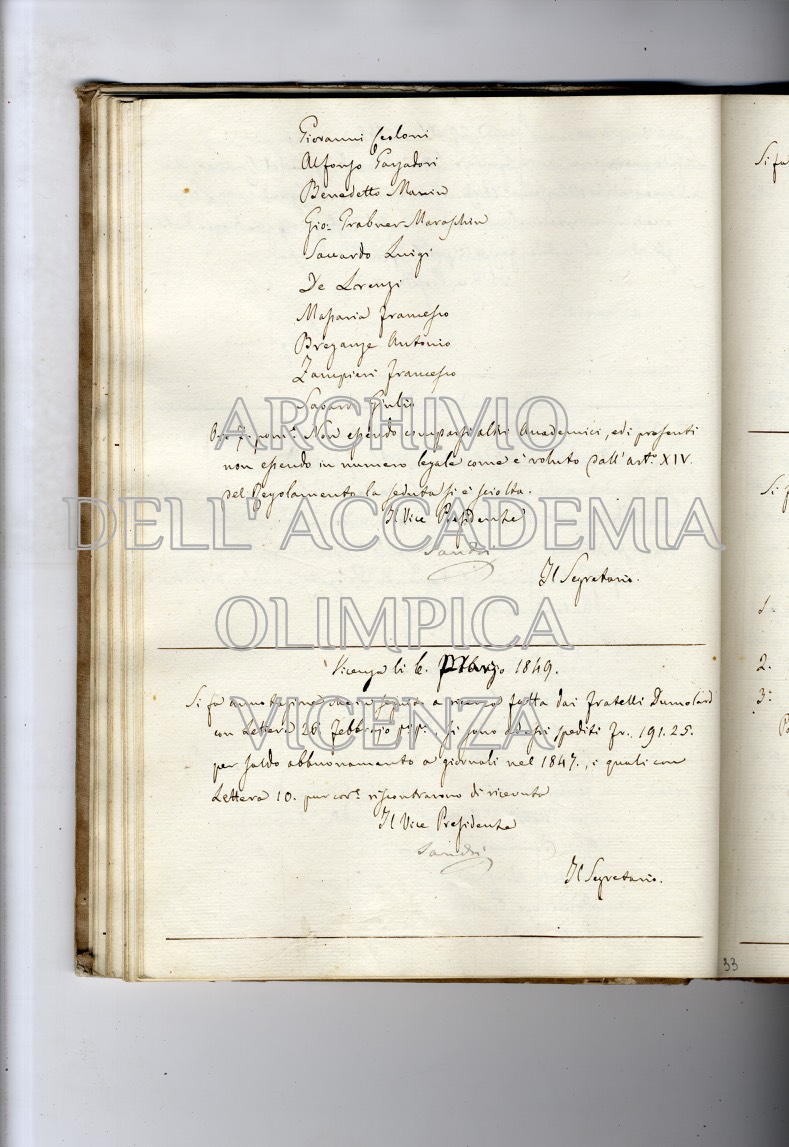 Giovanni Scoloni
Alfonso Gazzadori
Benedetto Marin
Gio: Trabner Maraschin
Saccardo Luigi
De Lorenzi
Massaria Francesco
Breganze Antonio
Zampieri Francesco
Savaro Giulio
Non essendo comparsi altri Accademici, ed i presenti
non essendo in numero legale come è voluto dall'arto. XIV.
del Regolamento la seduta si è sciolta.
Il Vice Presidente
Sandri
Il Segretario.
Vicenza li 6. Marzo 1849.
Si fa annotazione che in seguito a ricerca fatta dai fratelli Dumolard
con Lettera 26 febbrajo si sono ad essi spediti Fr. 191.25.
per saldo abbuonamento a giornali nel 1847., i quali con
Lettera 10. pur cor.e riscontrarono di ricevuta
Il Vice Presidente
Sandri
Il Segretario.
33
Si fa
Si f
2.
3:
ARCHIVIO
DELL'ACCADEMIA
OLIMPICA
VICENZA